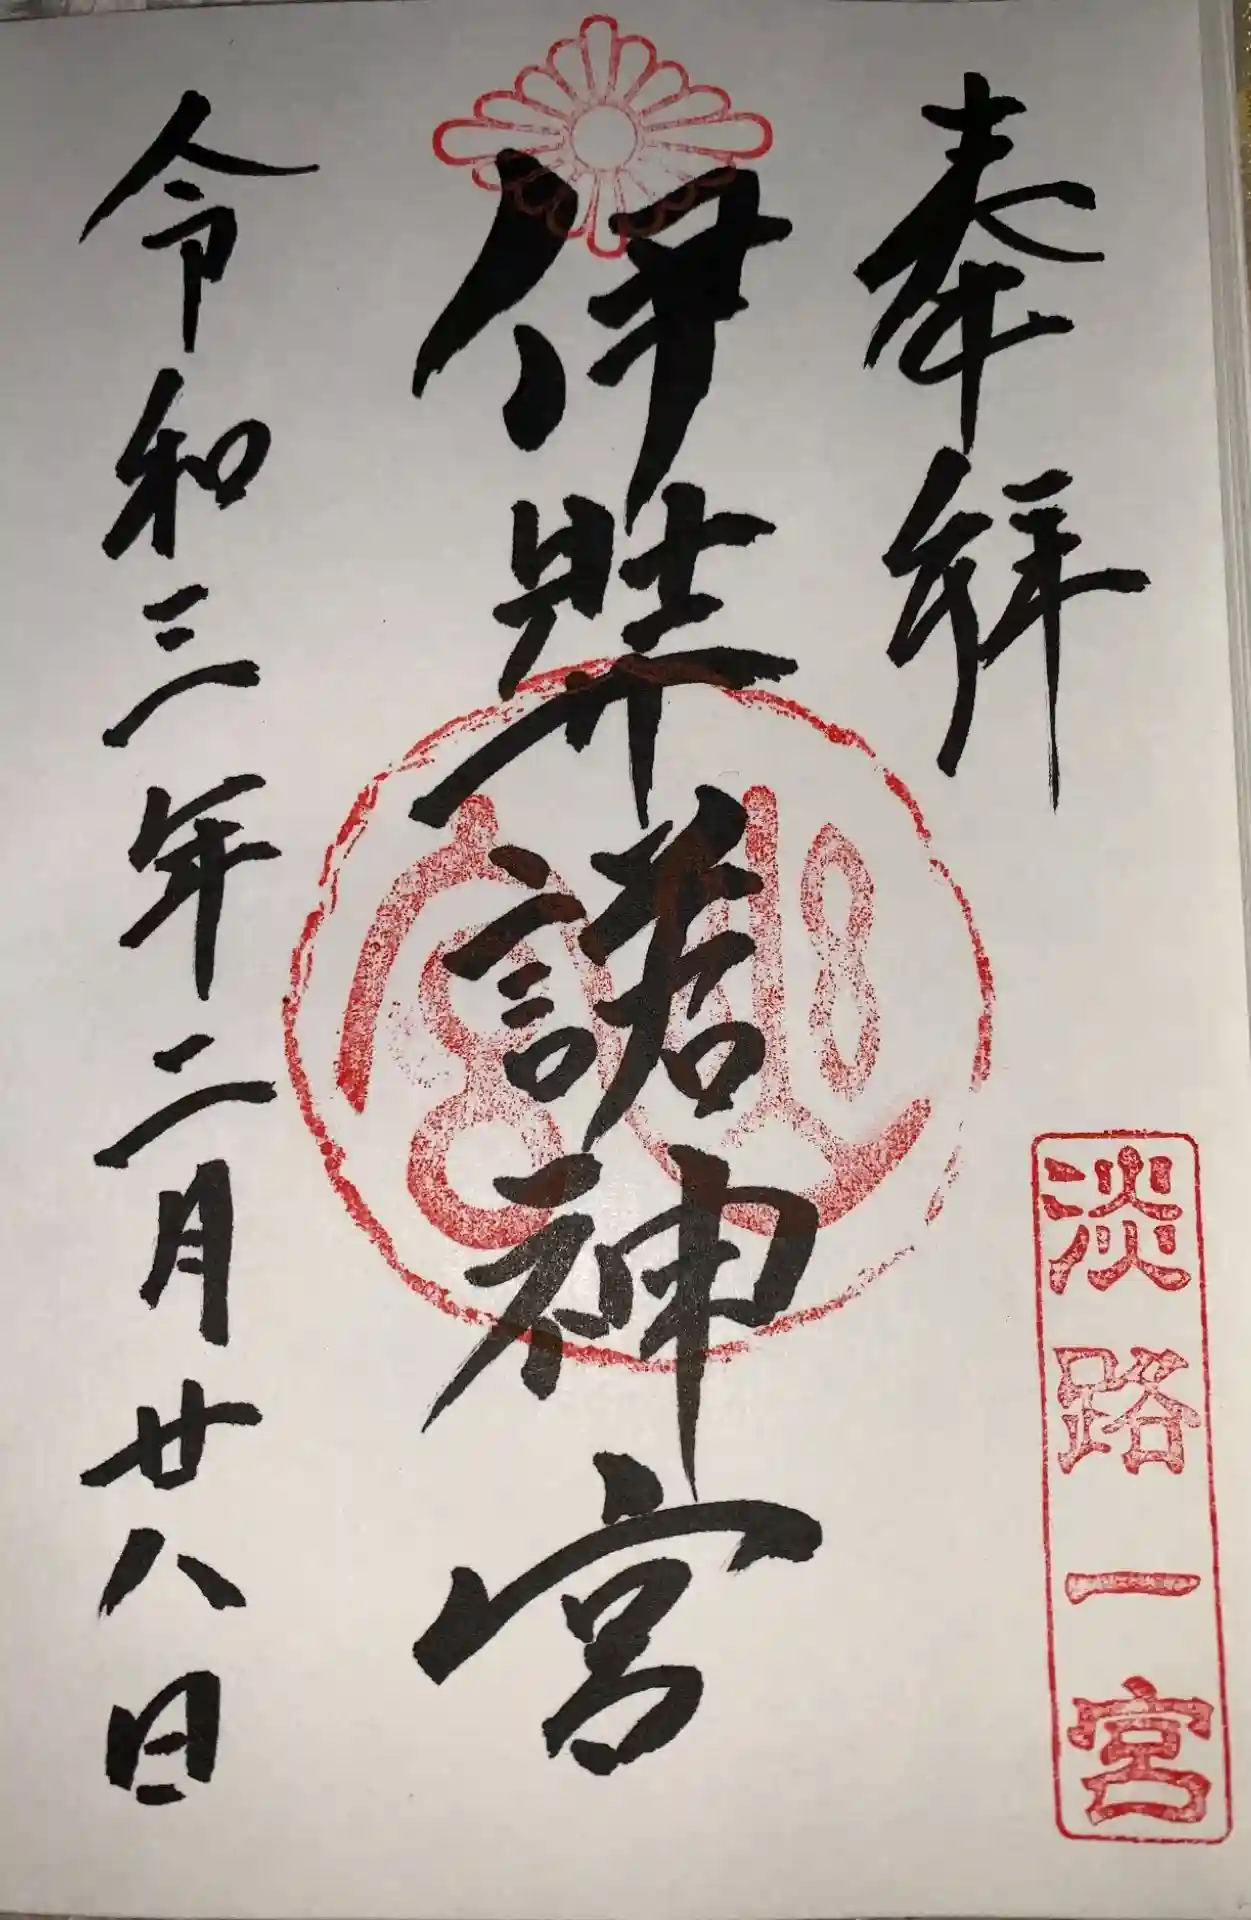 奉拜
淡路一宮
伊弉諾神宮
令和三年二月廿八日